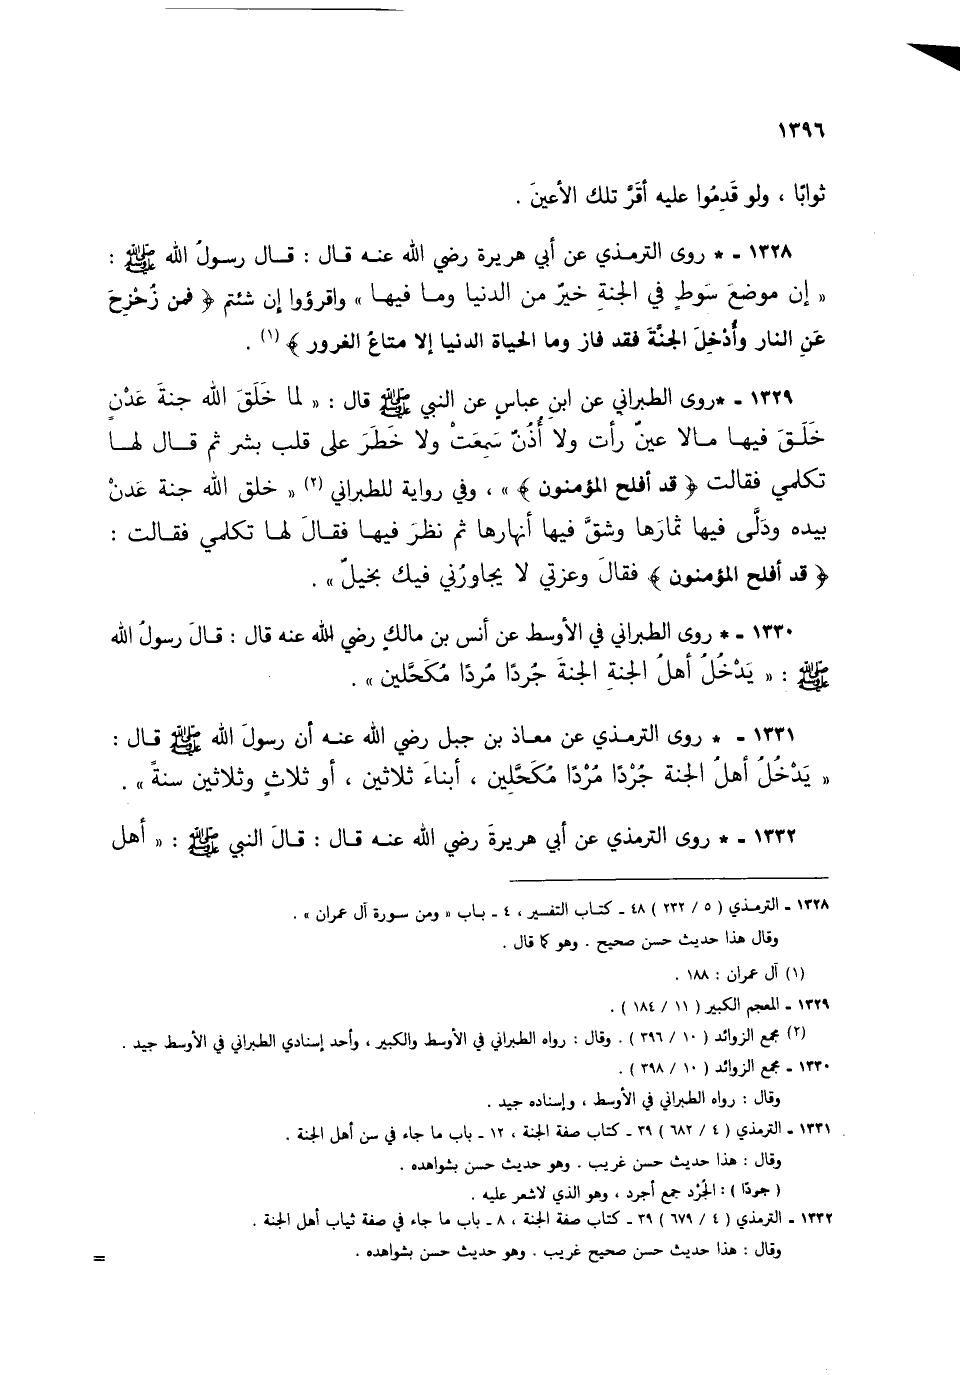 ١٣٩٦
ثوابًا ، ولو قَدِمُوا عليه أقَرَّ تلك الأعينَ .
١٣٢٨ - * روى الترمذي عن أبي هريرة رضي الله عنه قال : قال رسولُ الله ﷺ :
« إن موضعَ سَوطٍ في الجنةِ خيرٌ من الدنيا وما فيها » واقرؤوا إن شئتم ﴿ فمن زُحْزِحَ
عَنِ النار وأُدْخِلَ الجنَّةَ فقد فاز وما الحياة الدنيا إلا متاعُ الغرور ﴾ (١) .
١٣٢٩ - *روى الطبراني عن ابنِ عباسٍ عن النبي ﷺ قال : « لما خَلَقَ الله جنةَ عَدْنٍ
خَلَقَ فيها مالا عينٌ رأت ولا أُذُنٌ سَمِعَتْ ولا خَطَرَ على قلب بشر ثم قال لها
تكلمي فقالت ﴿ قد أفلح المؤمنون ﴾ » ، وفي رواية للطبراني (٢) « خلق الله جنة عَدنْ
بيده ودَلَّى فيها ثمارَها وشقَّ فيها أنهارها ثم نظرَ فيها فقالَ لها تكلمي فقالت :
﴿ قد أفلح المؤمنون ﴾ فقالَ وعزتي لا يجاورُني فيك بخيلٌ » .
١٣٣٠ - * روى الطبراني في الأوسط عن أنس بن مالكٍ رضي الله عنه قال : قالَ رسولُ الله
ﷺ : « يَدْخُلُ أهلُ الجنةِ الجنةَ جُردًا مُردًا مُكَحَّلين » .
١٣٣١ - * روى الترمذي عن معاذ بن جبل رضي الله عنه أن رسولَ الله ﷺ قال :
« يَدْخُلُ أهلُ الجنة جُرْدًا مُرْدًا مُكَحَّلِين ، أبناءَ ثلاثين ، أو ثلاثٍ وثلاثين سنةً » .
١٣٣٢ - * روى الترمذي عن أبي هريرةَ رضي الله عنه قال : قالَ النبي ﷺ : « أهل
١٣٢٨ - الترمذي ( ٥ / ٢٣٢ ) ٤٨ - كتاب التفسير ، ٤ - باب « ومن سورة آل عمران » .
وقال هذا حديث حسن صحيح . وهو كما قال .
(١) آل عمران : ١٨٨ .
١٣٢٩ - المعجم الكبير ( ١١ / ١٨٤ ) .
(٢) مجمع الزوائد ( ١٠ / ٣٩٦ ) . وقال : رواه الطبراني في الأوسط والكبير ، وأحد إسنادي الطبراني في الأوسط جيد .
١٣٣٠ - مجمع الزوائد ( ١٠ / ٣٩٨ ) .
وقال : رواه الطبراني في الأوسط ، وإسناده جيد .
١٣٣١ - الترمذي ( ٤ / ٦٨٢ ) ٣٩ - كتاب صفة الجنة ، ١٢ - باب ما جاء في سن أهل الجنة .
وقال : هذا حديث حسن غريب . وهو حديث حسن بشواهده .
( جردًا ) : الجُرْد جمع أجرد ، وهو الذي لاشعر عليه .
١٣٣٢ - الترمذي ( ٤ / ٦٧٩ ) ٣٩ - كتاب صفة الجنة ، ٨ - باب ما جاء في صفة ثياب أهل الجنة .
وقال : هذا حديث حسن صحيح غريب . وهو حديث حسن بشواهده .
=